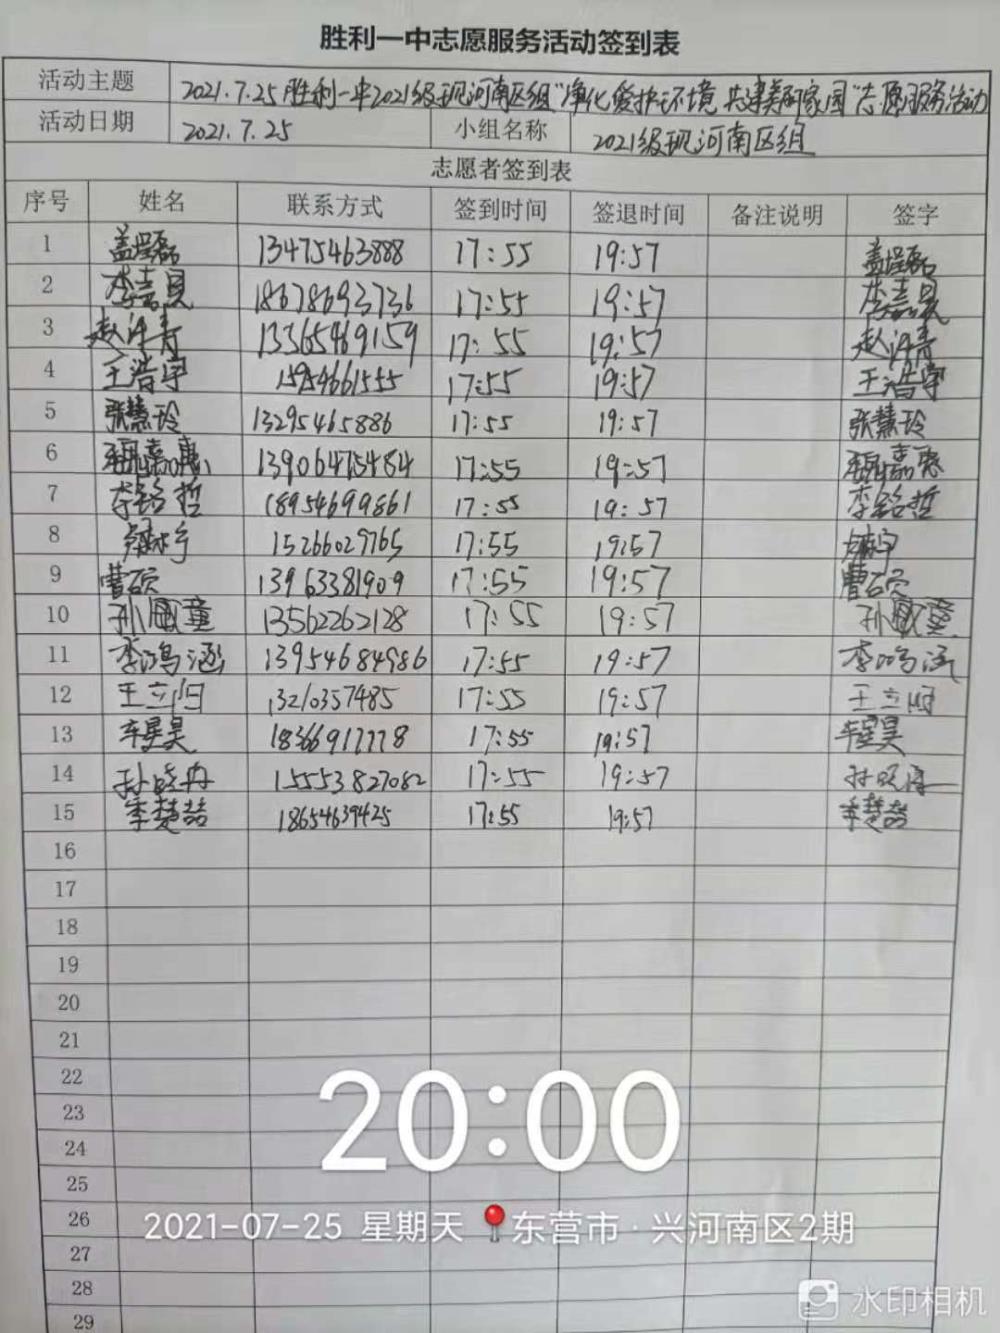 胜利一中志愿服务活动签到表
活动主题 2021.7.25胜利一中2021级现河南区组"净化爱护环境 共建美丽家园"志愿服务活动
活动日期 2021.7.25 小组名称 2021级现河南区组
志愿者签到表
序号 姓名 联系方式 签到时间 签退时间 备注说明 签字
1 13475463888 17:55 19:57
2 李嘉昊 18678693736 17:55 19:57 李嘉昊
3 13365469159 17:55 19:57
4 王浩宇 17:55 19:57 王浩宇
5 张慧玲 13295465886 17:55 19:57 张慧玲
6 13906475484 17:55 19:57
7 李铭哲 18954699861 17:55 19:57 李铭哲
8 15266029765 17:55 19:57
9 曹硕 13963381909 17:55 19:57 曹硕
10 13562262128 17:55 19:57
11 李鸿涵 13954684986 17:55 19:57 李鸿涵
12 17:55 19:57
13 车星昊 17:55 19:57 车星昊
14 15553827082 17:55 19:57
15 李楚喆 18654639425 17:55 19:57 李楚喆
16
17
18
19
20
21
22
23
24
25
26
27
28
29
20:00
2021-07-25 星期天 东营市·兴河南区2期
水印相机